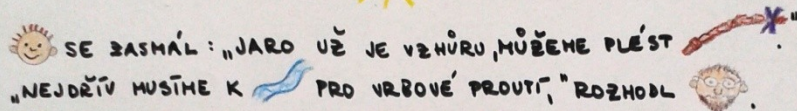 SE ZASMÁL: „JARO UŽ JE VZHŮRU, MŮŽEME PLÉST .“
„NEJDŘÍV MUSÍME K PRO VRBOVÉ PROUTÍ,“ ROZHODL .